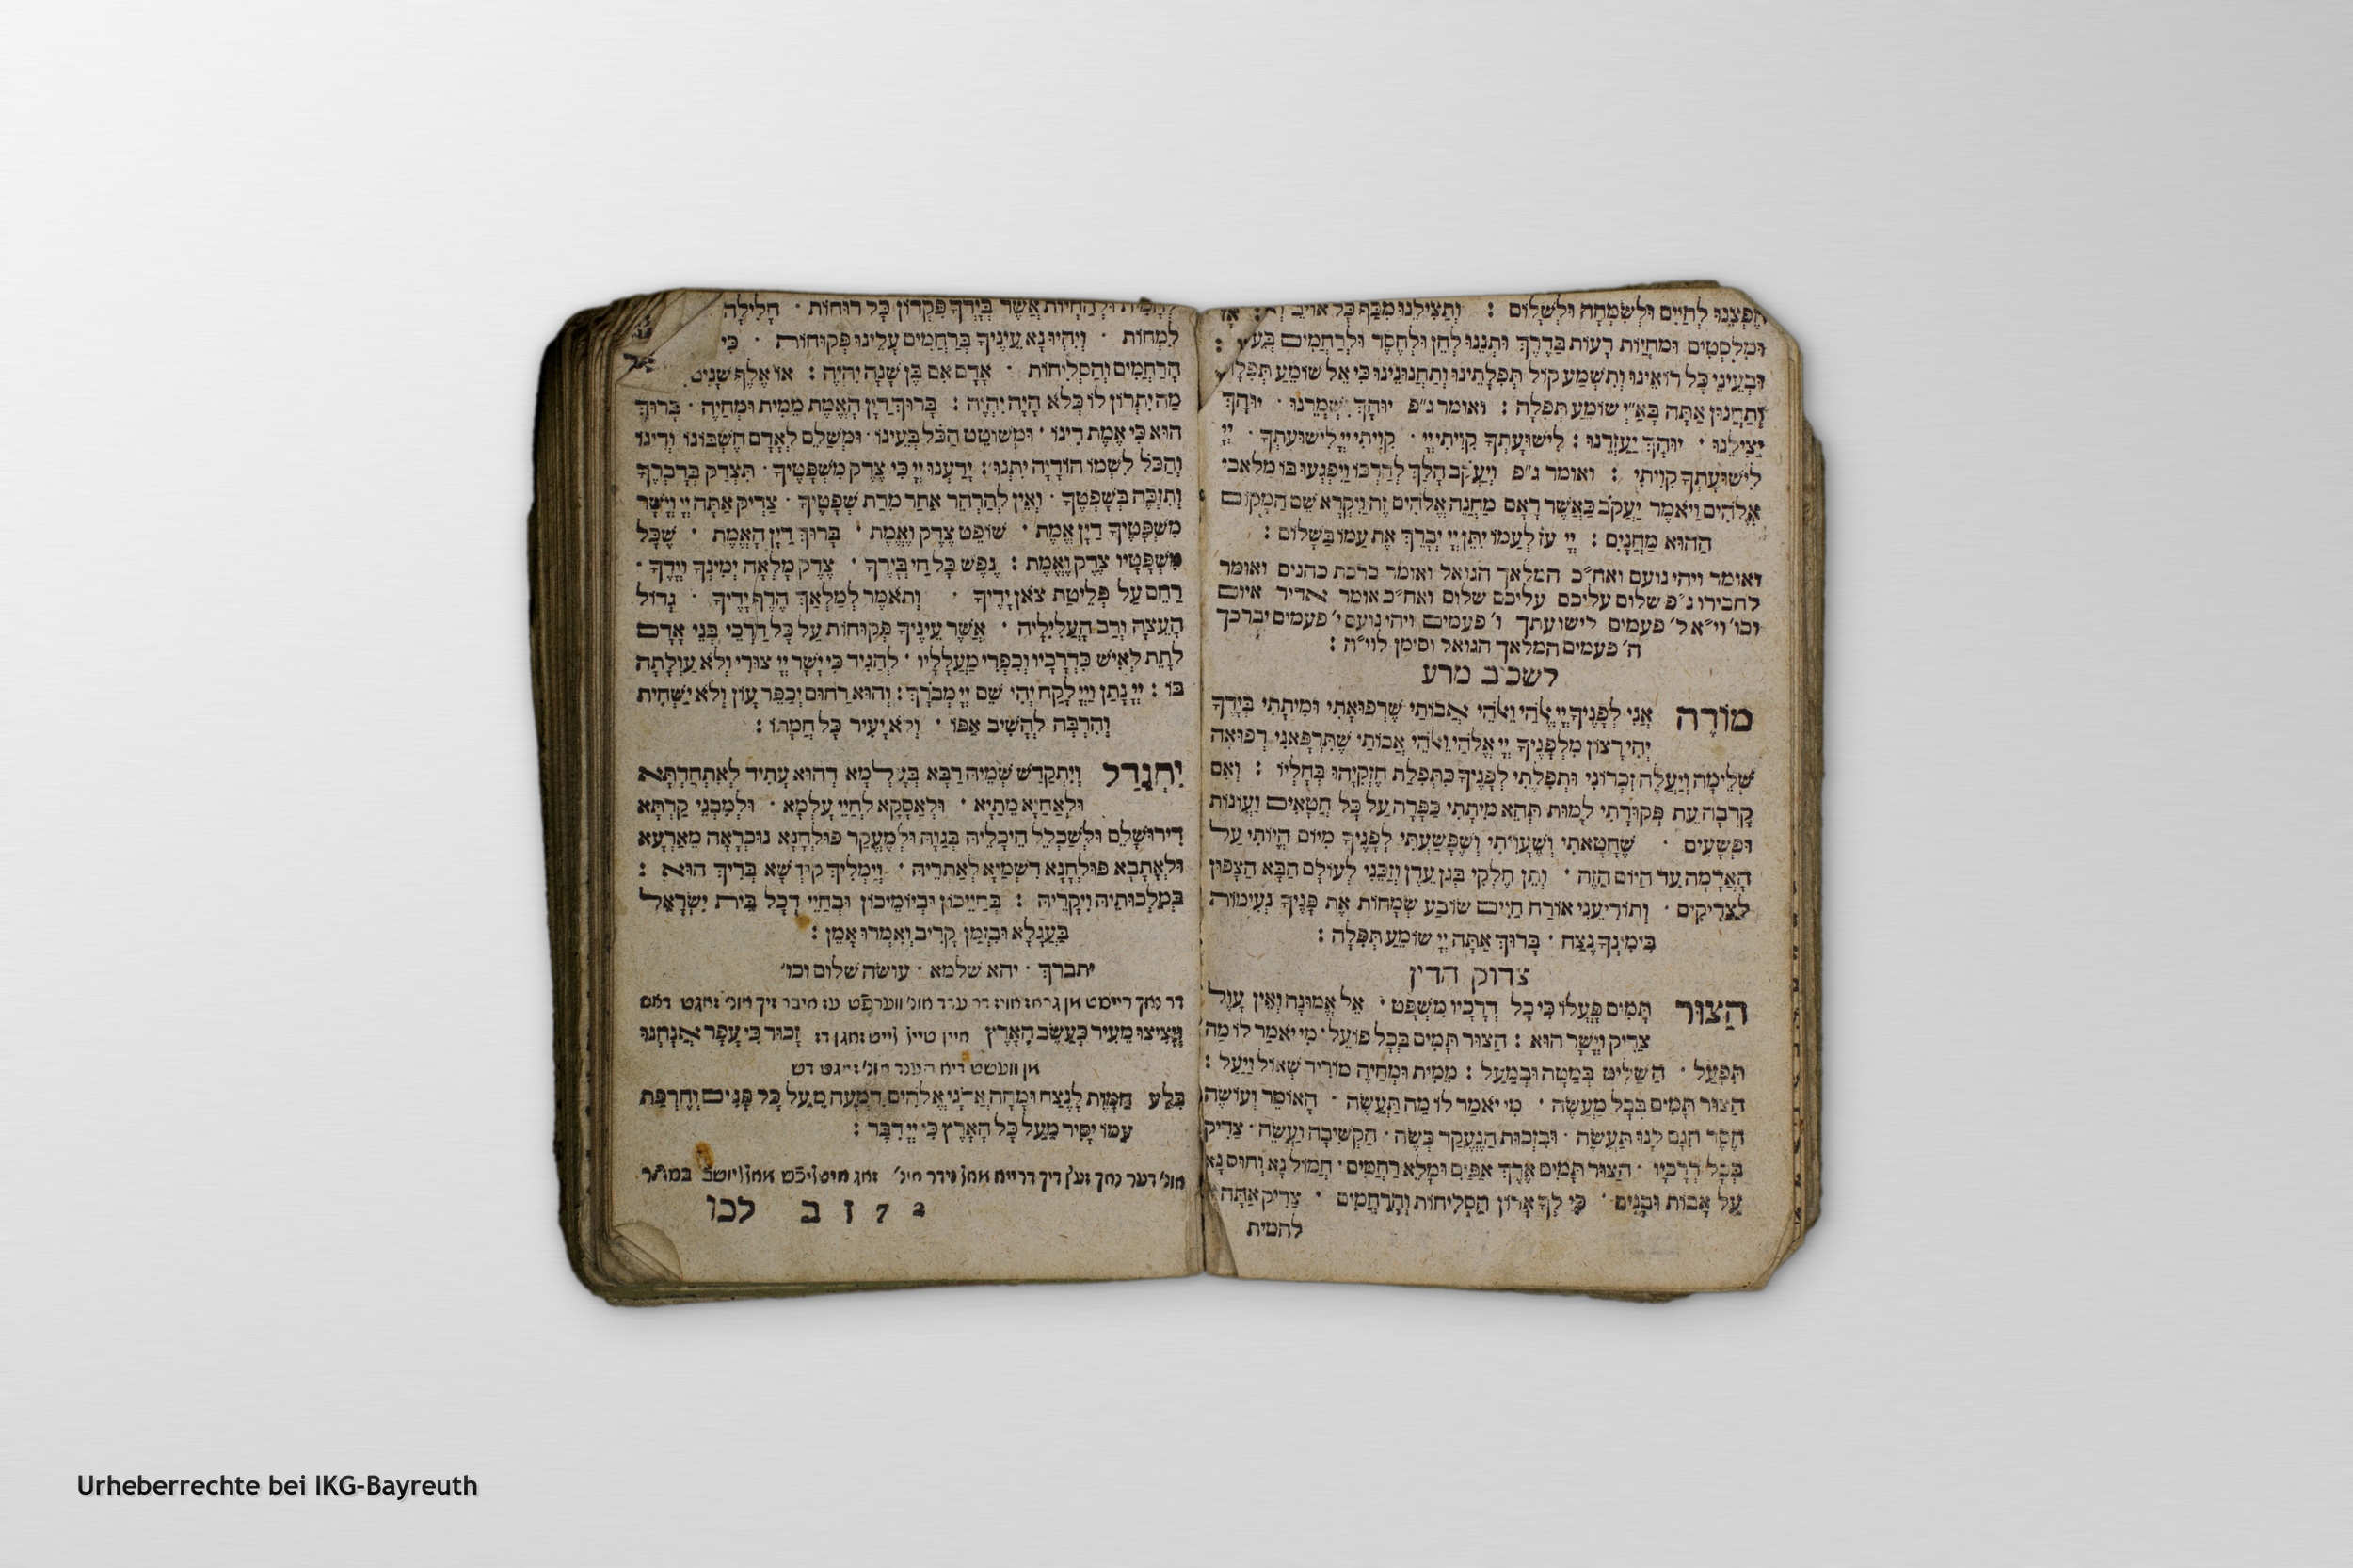 חפצנו לחיים ולשמחה ולשלום : ותצילנו מכף כל אויב
ומלסטים ומחיות רעות בדרך ותננו לחן ולחסד ולרחמים
ובעיני כל רואינו ותשמע קול תפלתינו ותחנונינו כי אל שומע
ותחנון אתה בא״י שומע תפלה : ואומר ג״פ יוהך ישמרנו · יוהך
יצילנו · יוהך יעזרנו : לישועתך קויתי יי · קויתי יי לישועתך · יי
לישועתך קויתי : ואומר ג״פ ויעקב הלך לדרכו ויפגעו בו מלאכי
אלהים ויאמר יעקב כאשר ראם מחנה אלהים זה ויקרא שם המקום
ההוא מחנים : יי עז לעמו יתן יי יברך את עמו בשלום :
ואומר ויהי נועם ואח״כ המלאך הגואל ואומר ברכת כהנים ואומר
לחבירו ג״פ שלום עליכם עליכם שלום ואח״כ אומר אדיר איום
וכו׳ וי״א ל׳ פעמים לישועתך ו׳ פעמים ויהי נועם י׳ פעמים יברכך
ה׳ פעמים המלאך הגואל וסימן לוי״ה :
לשכ׳ב מרע
מודה אני לפניך יי אלהי ואלהי אבותי שרפואתי ומיתתי בידך
יהי רצון מלפניך יי אלהי ואלהי אבותי שתרפאני רפואה
שלימה ויעלה זכרוני ותפלתי לפניך כתפלת חזקיהו בחליו : ואם
קרבה עת פקודתי למות תהא מיתתי כפרה על כל חטאים ועונות
ופשעים · שחטאתי ושעויתי ושפשעתי לפניך מיום היותי על
האדמה עד היום הזה · ותן חלקי בגן עדן וזכני לעולם הבא הצפון
לצדיקים · ותודיעני אורח חיים שובע שמחות את פניך נעימות
בימינך נצח · ברוך אתה יי שומע תפלה :
צדוק הדין
הצור תמים פעלו כי כל דרכיו משפט · אל אמונה ואין עול
צדיק וישר הוא : הצור תמים בכל פועל · מי יאמר לו מה
תפעל · השליט במטה ובמעל : ממית ומחיה מוריד שאול ויעל :
הצור תמים בכל מעשה · מי יאמר לו מה תעשה · האומר ועושה
חסד חנם לנו תעשה · ובזכות הנעקד כשה · הקשיבה ועשה · צדיק
בכל דרכיו · הצור תמים ארך אפים ומלא רחמים · חמול נא וחוס נא
על אבות ובנים · כי לך אדון הסליחות והרחמים · צדיק אתה
להמית
להמית ולהחיות אשר בידך פקדון כל רוחות · חלילה
למחות · ויהיו נא עיניך ברחמים עלינו פקוחות · כי
הרחמים והסליחות · אדם אם בן שנה יהיה : או אלף שנים
מה יתרון לו כלא היה יהיה : ברוך דיין האמת ממית ומחיה · ברוך
הוא כי אמת דינו · ומשוטט הכל בעינו · ומשלם לאדם חשבונו ודינו
והכל לשמו הודיה יתנו : ידענו יי כי צדק משפטיך · תצדק בדברך
ותזכה בשפטך · ואין להרהר אחר מדת שפטיך · צדיק אתה יי וישר
משפטיך דיין אמת · שופט צדק ואמת · ברוך דיין האמת · שכל
משפטיו צדק ואמת : נפש כל חי בידך · צדק מלאה ימינך וידך ·
רחם על פליטת צאן ידיך · ותאמר למלאך הרף ידיך · גדול
העצה ורב העליליה · אשר עיניך פקוחות על כל דרכי בני אדם
לתת לאיש כדרכיו וכפרי מעלליו · להגיד כי ישר יי צורי ולא עולתה
בו : יי נתן ויי לקח יהי שם יי מבורך : והוא רחום יכפר עון ולא ישחית
והרבה להשיב אפו · ולא יעיר כל חמתו :
יתגדל ויתקדש שמיה רבא בעלמא דהוא עתיד לאתחדתא
ולאחיא מתיא · ולאסקא לחיי עלמא · ולמבני קרתא
דירושלם ולשכלל היכליה בגוה ולמעקר פולחנא נוכראה מארעא
ולאתבא פולחנא דשמיא לאתריה · וימליך קודשא בריך הוא :
במלכותיה ויקריה : בחייכון וביומיכון ובחיי דכל בית ישראל
בעגלא ובזמן קריב ואמרו אמן :
יתברך · יהא שלמא · עושה שלום וכו׳
דר נאך רייסט מן גראז אויז דר ערד אונ׳ ווערפט עז היבר זיך אונ׳ זאגט דאס
ויציצו מעיר כעשב הארץ זכור כי עפר אנחנו
אן וועשט דיא הענד אונ׳ זאגט דש
בלע המות לנצח ומחה אדני אלהים דמעה מעל כל פנים וחרפת
עמו יסיר מעל כל הארץ כי יי דבר :
אונ׳ דער נאך
ב ז לכו
Urheberrechte bei IKG-Bayreuth